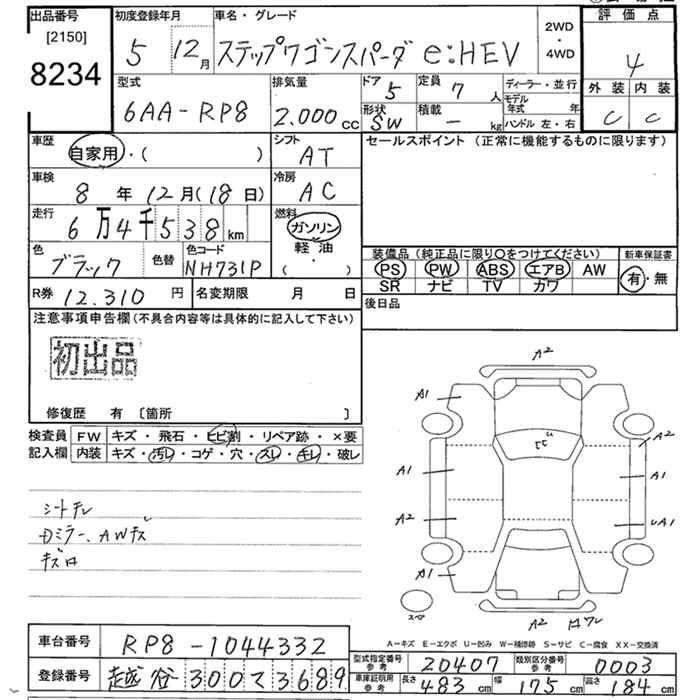 出品番号
[2150]
8234
初度登録年月
5 12月
車名・グレード
ステップワゴンスパーダ e:HEV
2WD
・
4WD
評価点
4
外装 内装
C C
型式
6AA-RP8
排気量
2.000cc
ドア 5
形状 SW
定員 7人
積載 ー kg
ディーラー・並行
モデル年式 年
ハンドル 左・右
車歴
自家用・( )
シフト
AT
セールスポイント (正常に機能するものに限ります)
車検
8年12月(18日)
冷房
AC
走行
6万4千538km
燃料
ガソリン
軽油
・( )
色
ブラック
色替
色コード
NH731P
装備品(純正品に限り○をつけてください)
PS PW ABS エアB AW
SR ナビ TV カワ
新車保証書
有・無
R券 12.310円
名変期限 月 日
後日品
注意事項申告欄(不具合内容等は具体的に記入して下さい)
初出品
修復歴 有 [箇所 ]
検査員記入欄
FW キズ・飛石・ヒビ割・リペア跡・×要
内装 キズ・汚レ・コゲ・穴・スレ・キレ・破レ
シートチレ
Dミラー、AWキズ
キズロ
A2
A1 A1
A2
A1 A1
A2 UA1
A1
スペア
A2 ロワレ
A-キズ E-エクボ U-凹み W-補修跡 S-サビ C-腐食 XX-交換済
車台番号 RP8-1044332
登録番号 越谷300て3689
型式指定番号参考 20407
類別区分番号参考 0003
車庫証明用参考 長さ 483cm 幅 175cm 高さ 184cm